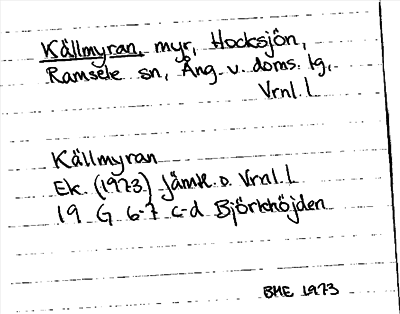 Källmyran, myr, Hocksjön,
Ramsele sn, Ång. v. doms. lg.
Vrnl. l
Källmyran
Ek. (1973) Jämtl. o. Vrnl. l
19 G 6-7 c-d Björkhöjden
BHE 1973